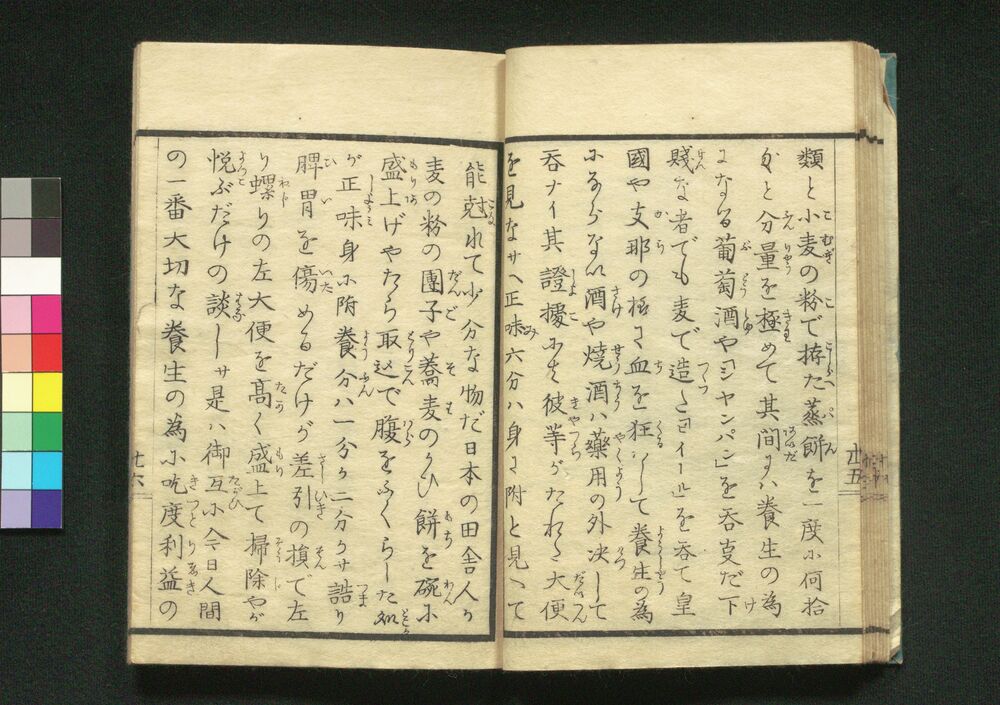 類と小麦の粉で拵た蒸餅を一度に何拾
匁と分量を極めて其間には養生の為
になる葡萄酒や「シヤンパン」を呑支だ下
賤な者でも麦で造た「ヱール」を呑て皇
國や支那の極に血を狂はして養生の為
にならない酒や焼酒ハ藥用の外决して
呑ナイ其證據にハ彼等がたれた大便
を見なサヘ正味六分ハ身に附と見へて
能尅れて少分な物だ日本の田舎人が
麦の粉の團子や蕎麦のかひ餅を碗に
盛上げやたら取込で腹をふくらした処
が正味身に附養分ハ一分か二分かサ詰り
脾胃を傷めるだけが差引の損で左
り螺りの左大便を高く盛上て掃除やが
悦ぶだけの談しサ是ハ御互に今日人間
の一番大切な養生の為に吃度利益の
廿五
廿六